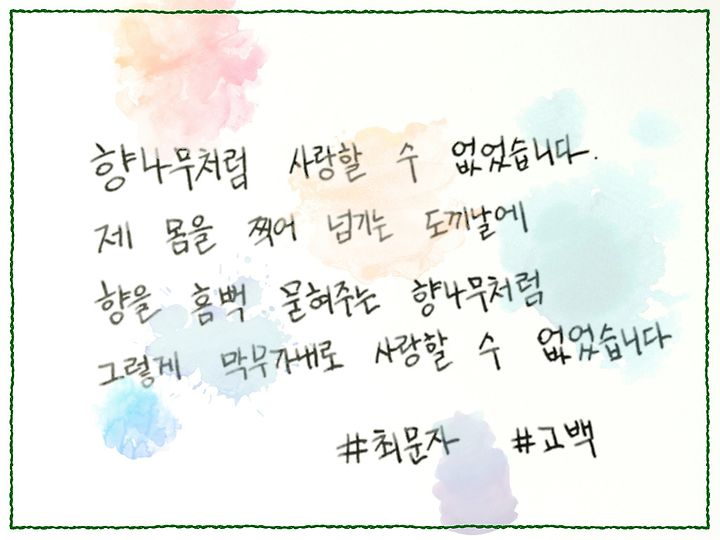 향나무처럼 사랑할 수 없었습니다.
제 몸을 찍어 넘기는 도끼날에
향을 흠뻑 묻혀주는 향나무처럼
그렇게 막무가내로 사랑할 수 없었습니다
#최문자 #고백